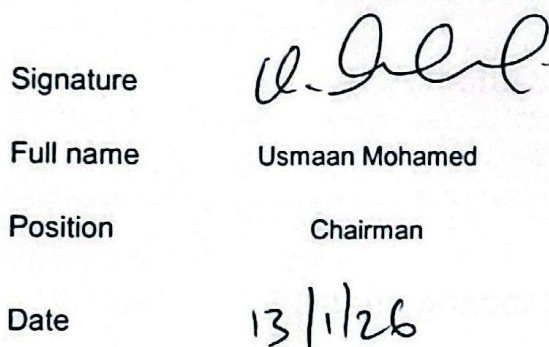 Signature
Full name Usmaan Mohamed
Position Chairman
Date 13/1/26